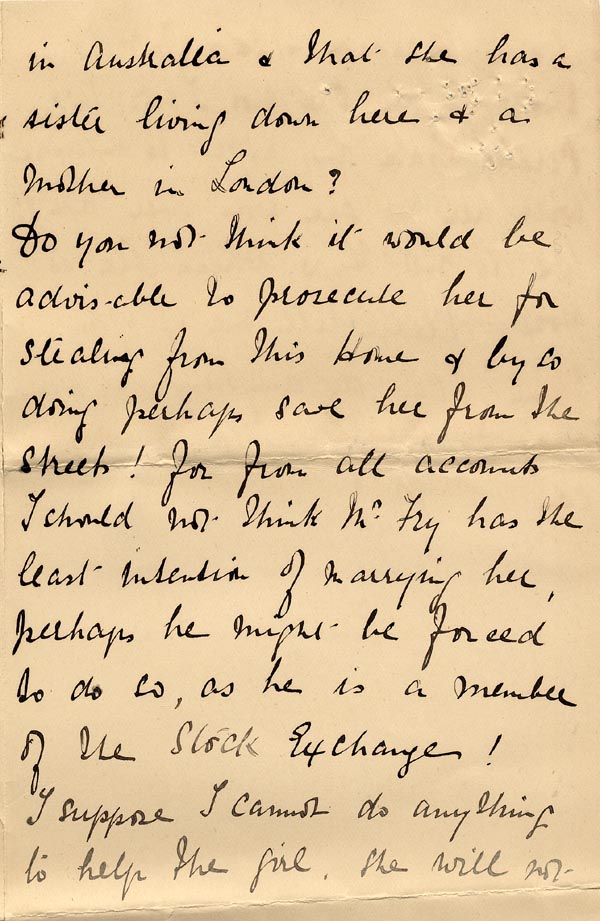 in Australia & that she has a
sister living down here & a
Mother in London?
Do you not think it would be
advis-able to prosecute her for
stealing from this Home & by so
doing perhaps save her from the
streets! for from all accounts
I should not think Mr Fry has the
least intention of marrying her,
perhaps he might be forced
to do so, as he is a member
of the Stock Exchange!
I suppose I cannot do anything
to help the girl. She will not